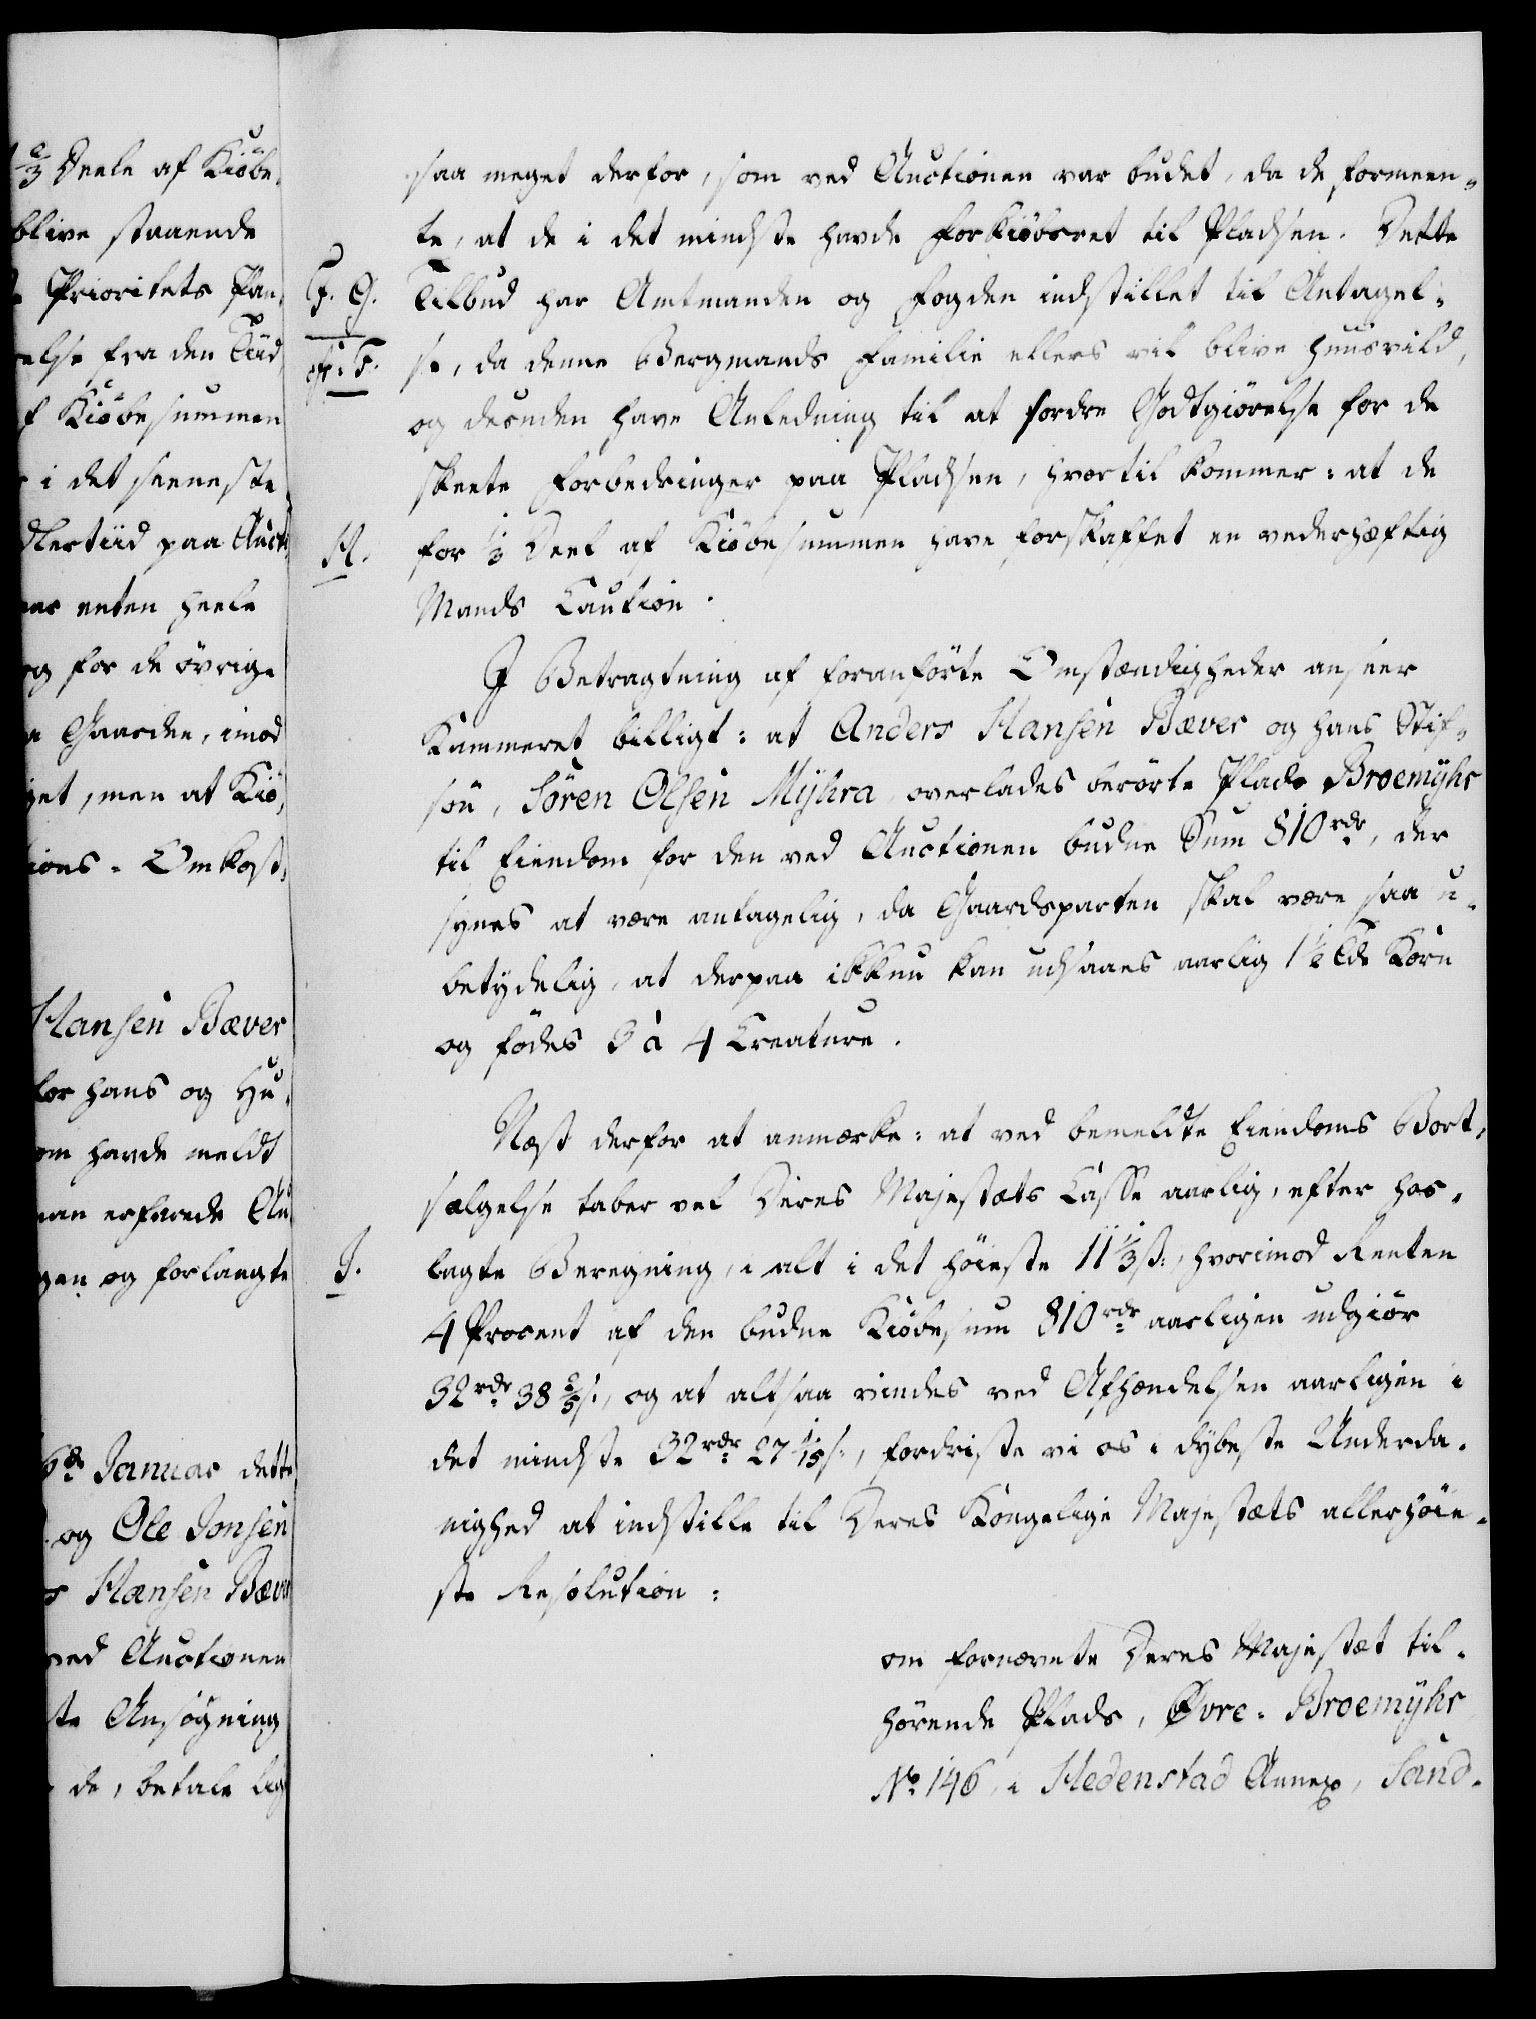 2/3 Deele af Kiöbe-
blive staaende
Prioritets Pan-
else fra den Tiid
f Kiöbesummen
i det seeneste
dlertiid paa Auct
enten heele
og for de övrige
Gaarden, imod
get, men at Kiö-
ions-Omkost-
Hansen Bæver
for hans og Hu-
om havde meldt
man erfarede Au
gen og forlangte
Januar dette
og Ole Jonsen
Hansen Bæver
ved Auctionen
ste Ansögning
de, betale lig
saa meget derfor, som ved Auctionen var budet, da de formeen-
te, at de i det mindste havde Forkiöbsret til Pladsen. Dette
F. G.
Tilbud har Amtmanden og Fogden indstillet til Antagel-
se, da denne Bergmands Familie ellers vil blive huusvild,
og desuden have Anledning til at fordre Godtgiörelse for de
skeete Forbedringer paa Pladsen, hvortil kommer: at de
H.
for 1/3 Deel af Kiöbesummen have forskaffet en vederhæftig
Mands Caution.
I Betragtning af foranförte Omstændigheder anseer
Kammeret billigt: at Anders Hansen Bæver og hans Stif-
sön, Sören Olsen Mÿhra, overlades berörte Plads Broemÿhr
til Eiendom for den ved Auctionen budne Sum 810 rdr, der
synes at være antagelig, da Gaardsparten skal være saa u-
betydelig, at derpaa ikkun kan udsaaes aarlig 1 1/2 Tde Korn
og födes 3 à 4 Creature.
Næst derfor at anmærke: at ved bemeldte Eiendoms Bort-
sælgelse taber vel Deres Majestæts Casse aarlig, efter hos-
I.
lagte Beregning, i alt i det höieste 11 1/3 s:, hvorimod Renten
4 Procent af den budne Kiöbesum 810 rdr aarligen udgiör
32 rdr 38 2/5 s:, og at altsaa vindes ved Afhændelsen aarligen i
det mindste 32 rdr 27 1/15 s:, fordriste vi os i dybeste Underda-
nighed at indstille til Deres Kongelige Majestæts allerhöie-
ste Resolution:
om fornævnte Deres Majestæt til-
hörende Plads, Øvre-Broemÿhr
No 146, i Hedenstad Annex, Sand-